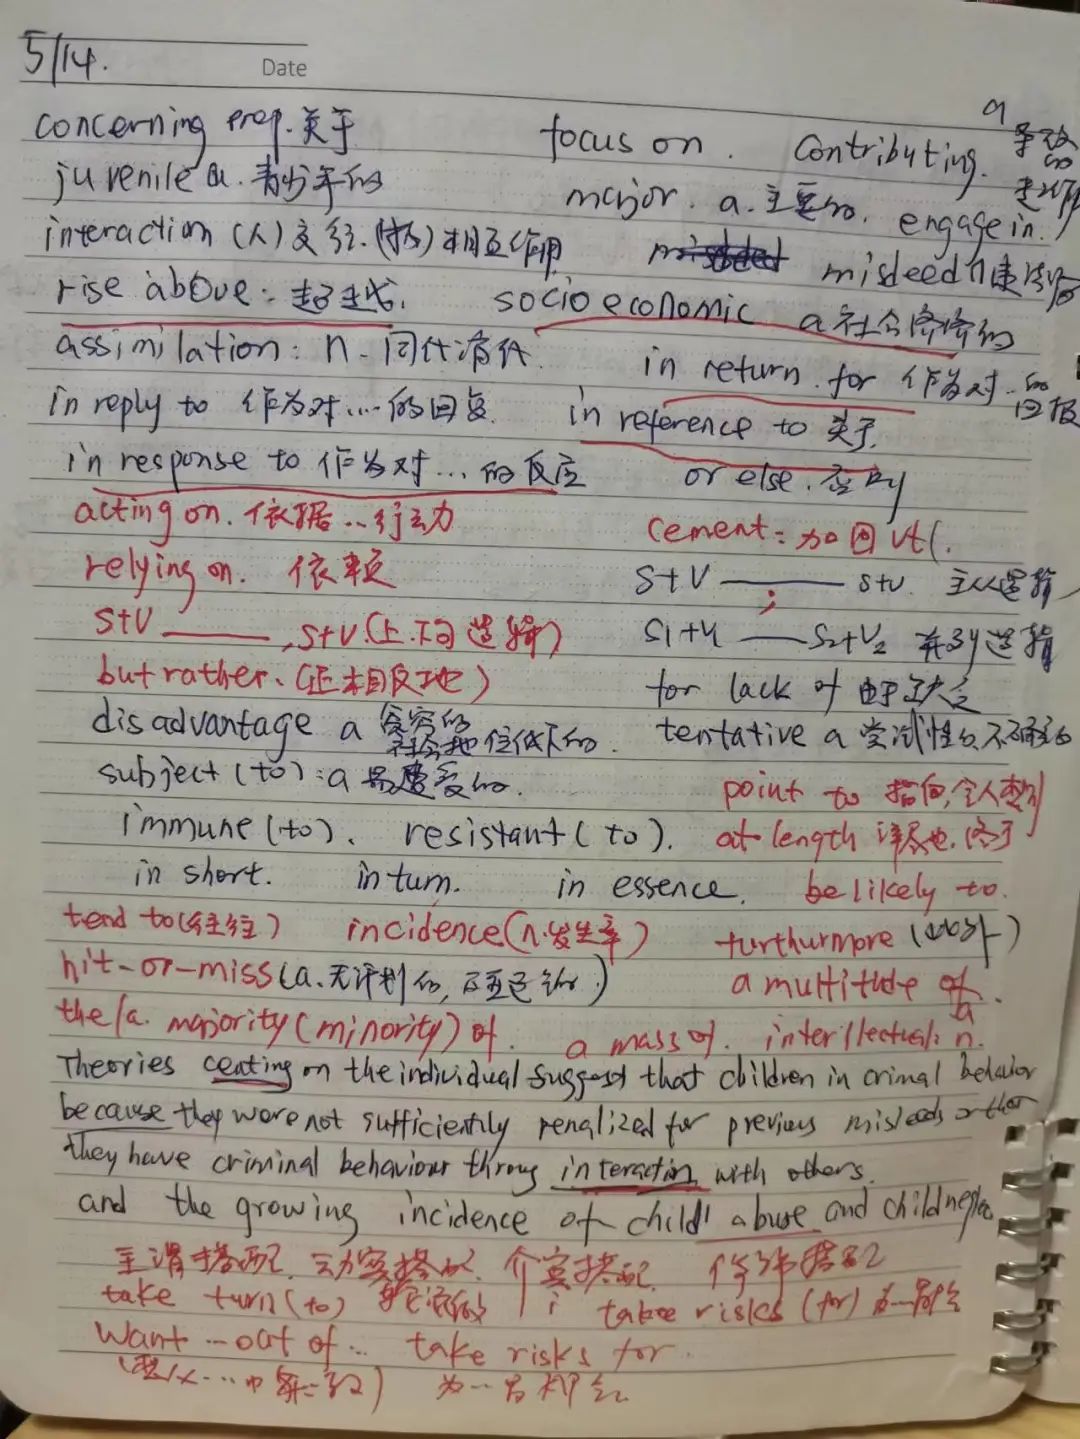 5/14.
Date
concerning prep.关于 focus on. contributing. a 导致的
juvenile a.青少年的 major. a.主要的. engage in.
interaction (人)交往.(物)相互作用 misdeed n
rise above: 超越. socioeconomic a社会经济的
assimilation: n. 同化
in return for 作为对..的回报
in reply to 作为对...的回复 in reference to 关于
in response to 作为对...的反应 or else.否则
acting on.依据..行动 cement:加固vt.
relying on. 依赖 S+V ——— S+V. 主从逻辑
S+V ———,S+V(上下句逻辑) S1+V1 ;—— S2+V2 并列逻辑
but rather.(正相反地) for lack of 由于缺乏
disadvantage a 贫穷的 社会地位低下的. tentative a 尝试性的不确定的
subject (to):a易遭受的. point to 指向,令人想到
immune(to). resistant(to). at length 详尽地.终于
in short. in turn. in essence. be likely to.
tend to(往往) incidence(n.发生率) furthurmore(此外)
hit-or-miss(a.无计划的, a multitude of.
the/a. majority(minority)of. a mass of. interllectual: a n.
Theories ceating on the individual suggest that children in crimal behavior
because they were not sufficiently penalized for previous misdeeds or that
they have criminal behaviour throug interaction with others.
and the growing incidence of child abuse and child neglec
主谓搭配.动宾搭配.介宾搭配.修饰搭配
take turn(to) 轮流做 i take risks (for)
want ... out of ... take risks for